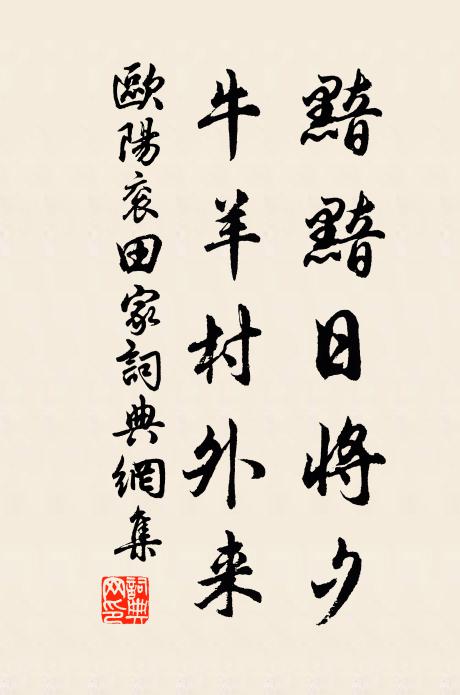 黯黯日將夕
牛羊村外来
歐陽衮田家詞典網集
詞典網印